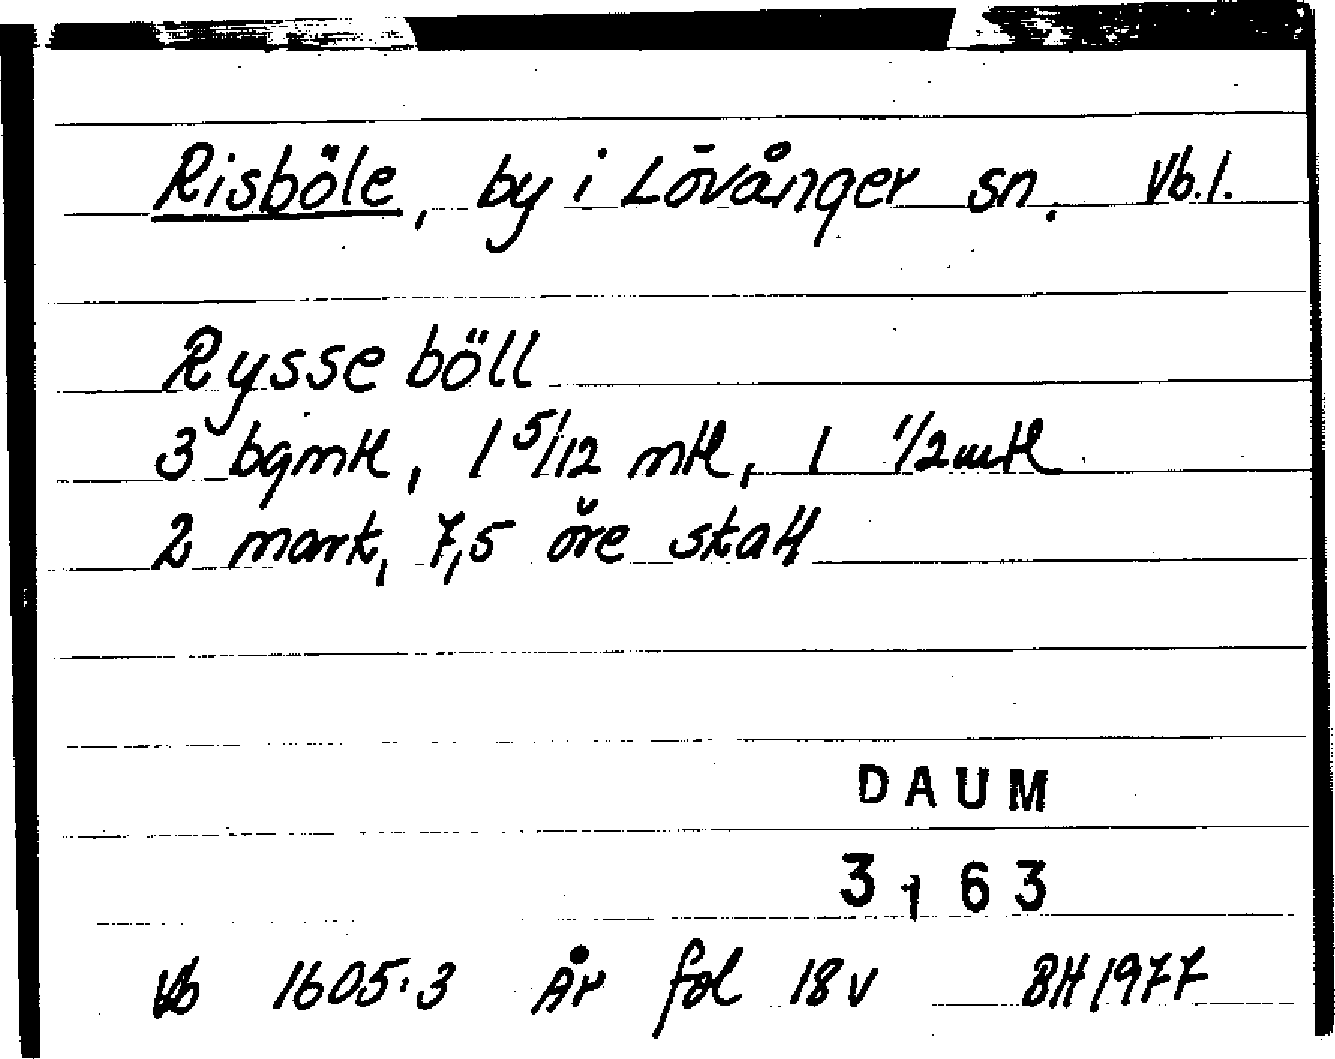 Risböle, by i Lövånger sn. Vb.l.
Rysse böll
3 bgmtl, 1 5/12 mtl, 1 1/2 mtl
2 mark, 7,5 öre skatt
DAUM
3163
Vb 1605:3 Är fol 18v BH 1977